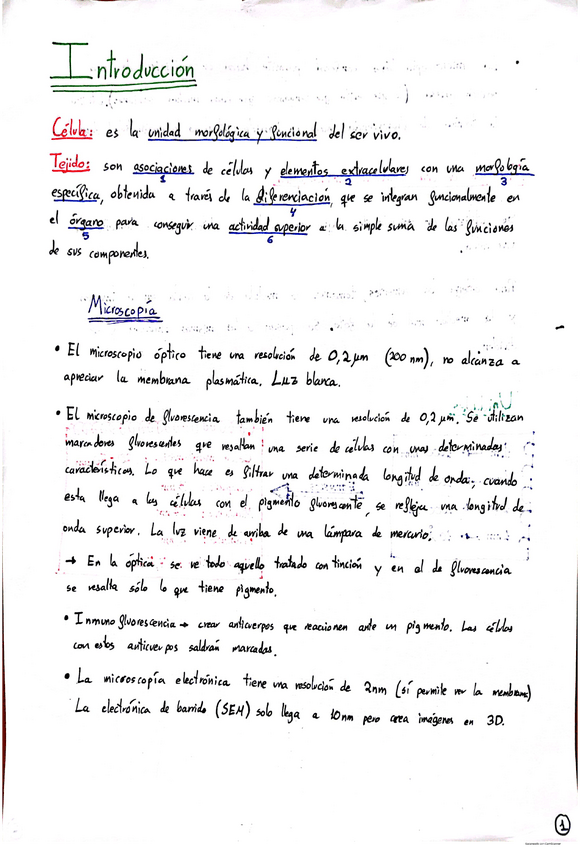 Introducción
Célula: es la unidad morfológica y funcional del ser vivo.
Tejido: son asociaciones de células y elementos extracelulares con una morfología
1 2 3
específica, obtenida a través de la diferenciación, que se integran funcionalmente en
4
el órgano para conseguir una actividad superior a la simple suma de las funciones
5 6
de sus componentes.
Microscopía
• El microscopio óptico tiene una resolución de 0,2 μm (200 nm), no alcanza a
apreciar la membrana plasmática. Luz blanca.
• El microscopio de fluorescencia también tiene una resolución de 0,2 μm. Se utilizan
marcadores fluorescentes que resaltan una serie de células con unas determinadas
características. Lo que hace es filtrar una determinada longitud de onda, cuando
esta llega a las células con el pigmento fluorescente, se refleja una longitud de
onda superior. La luz viene de arriba de una lámpara de mercurio.
→ En la óptica se ve todo aquello tratado con tinción y en el de fluorescencia
se resalta sólo lo que tiene pigmento.
• Inmunofluorescencia → crear anticuerpos que reaccionen ante un pigmento. Las células
con estos anticuerpos saldrán marcadas.
• La microscopía electrónica tiene una resolución de 2nm (sí permite ver la membrana)
La electrónica de barrido (SEM) solo llega a 10nm pero crea imágenes en 3D.
1